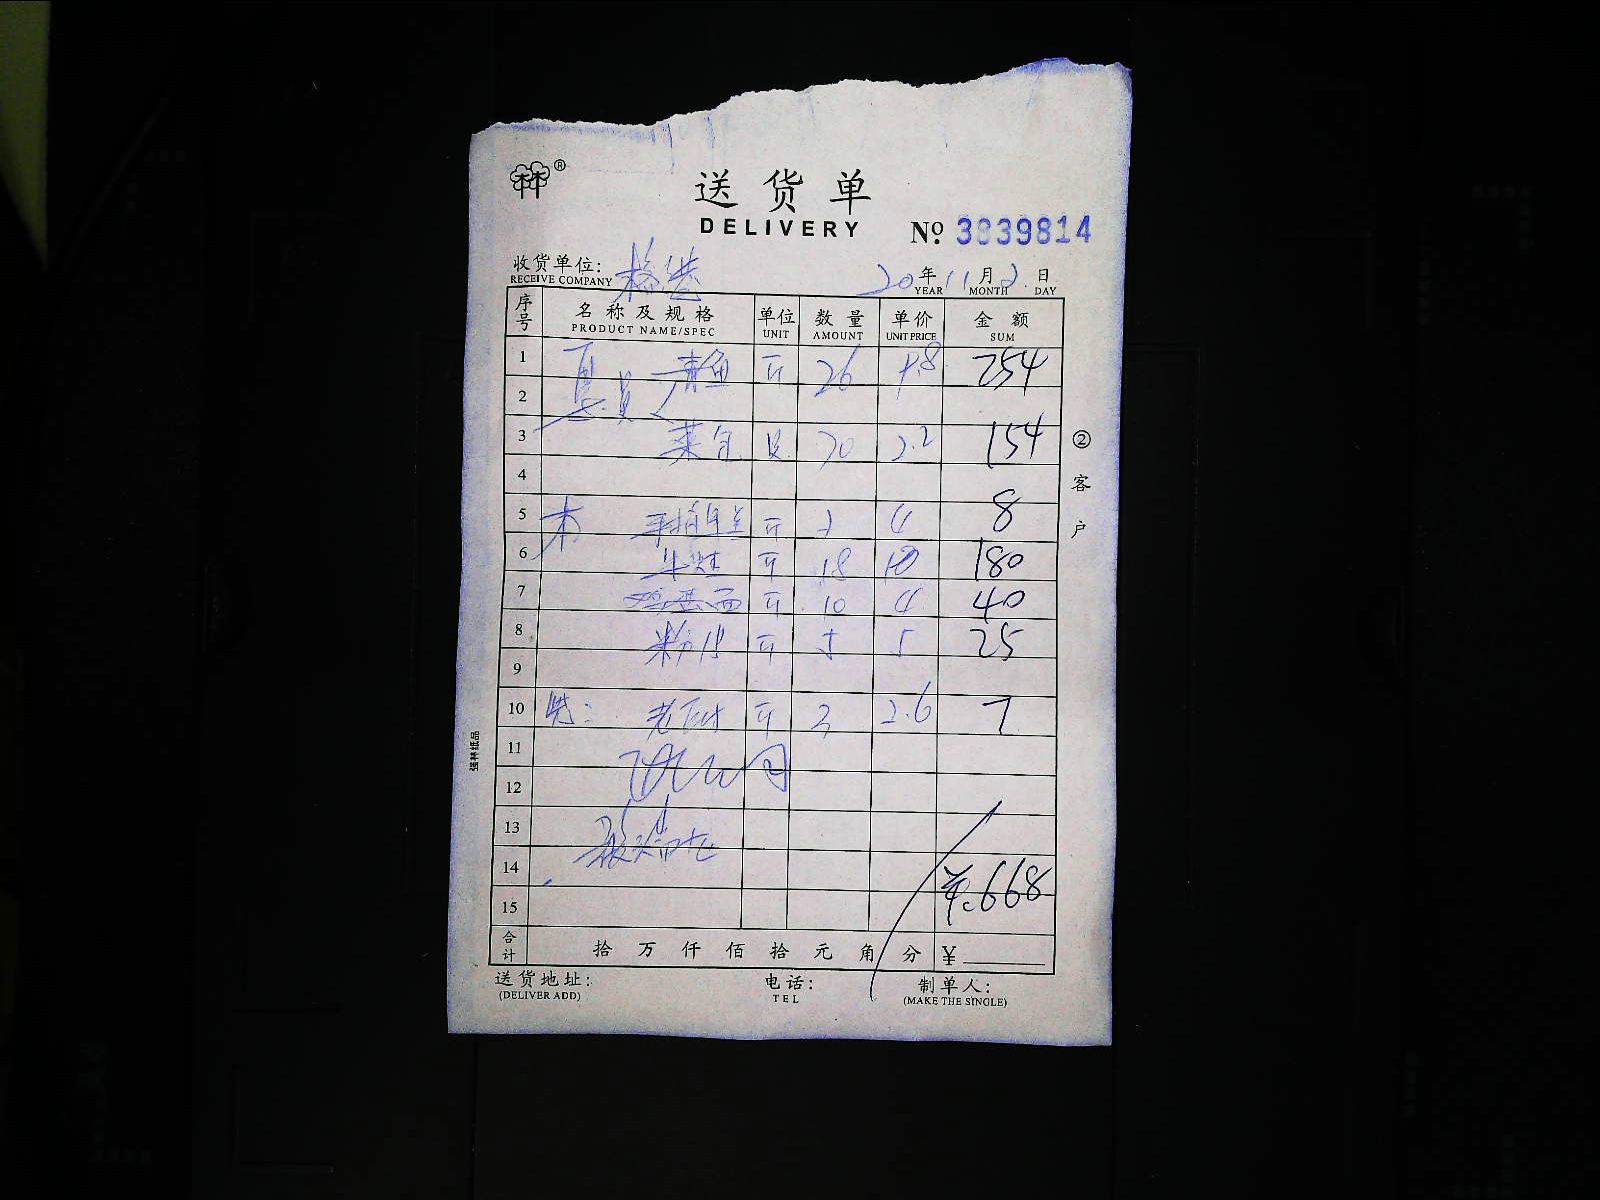 林®
送货单
DELIVERY
№ 3839814
收货单位:
RECEIVE COMPANY
20 年 11 月 2 日
YEAR MONTH DAY
序号 名称及规格 单位 数量 单价 金额
PRODUCT NAME/SPEC UNIT AMOUNT UNIT PRICE SUM
1 青鱼 斤 26 9.8 254
2
3 70 2.2 154
4
5 斤 2 4 8
6 斤 18 10 180
7 斤 10 4 40
8 粉 斤 5 5 25
9
10 斤 2.6 7
11
12
13
14 ¥:668
15
合计 拾 万 仟 佰 拾 元 角 分 ¥
送货地址: 电话: 制单人:
(DELIVER ADD) TEL (MAKE THE SINGLE)
②客户
强林纸品